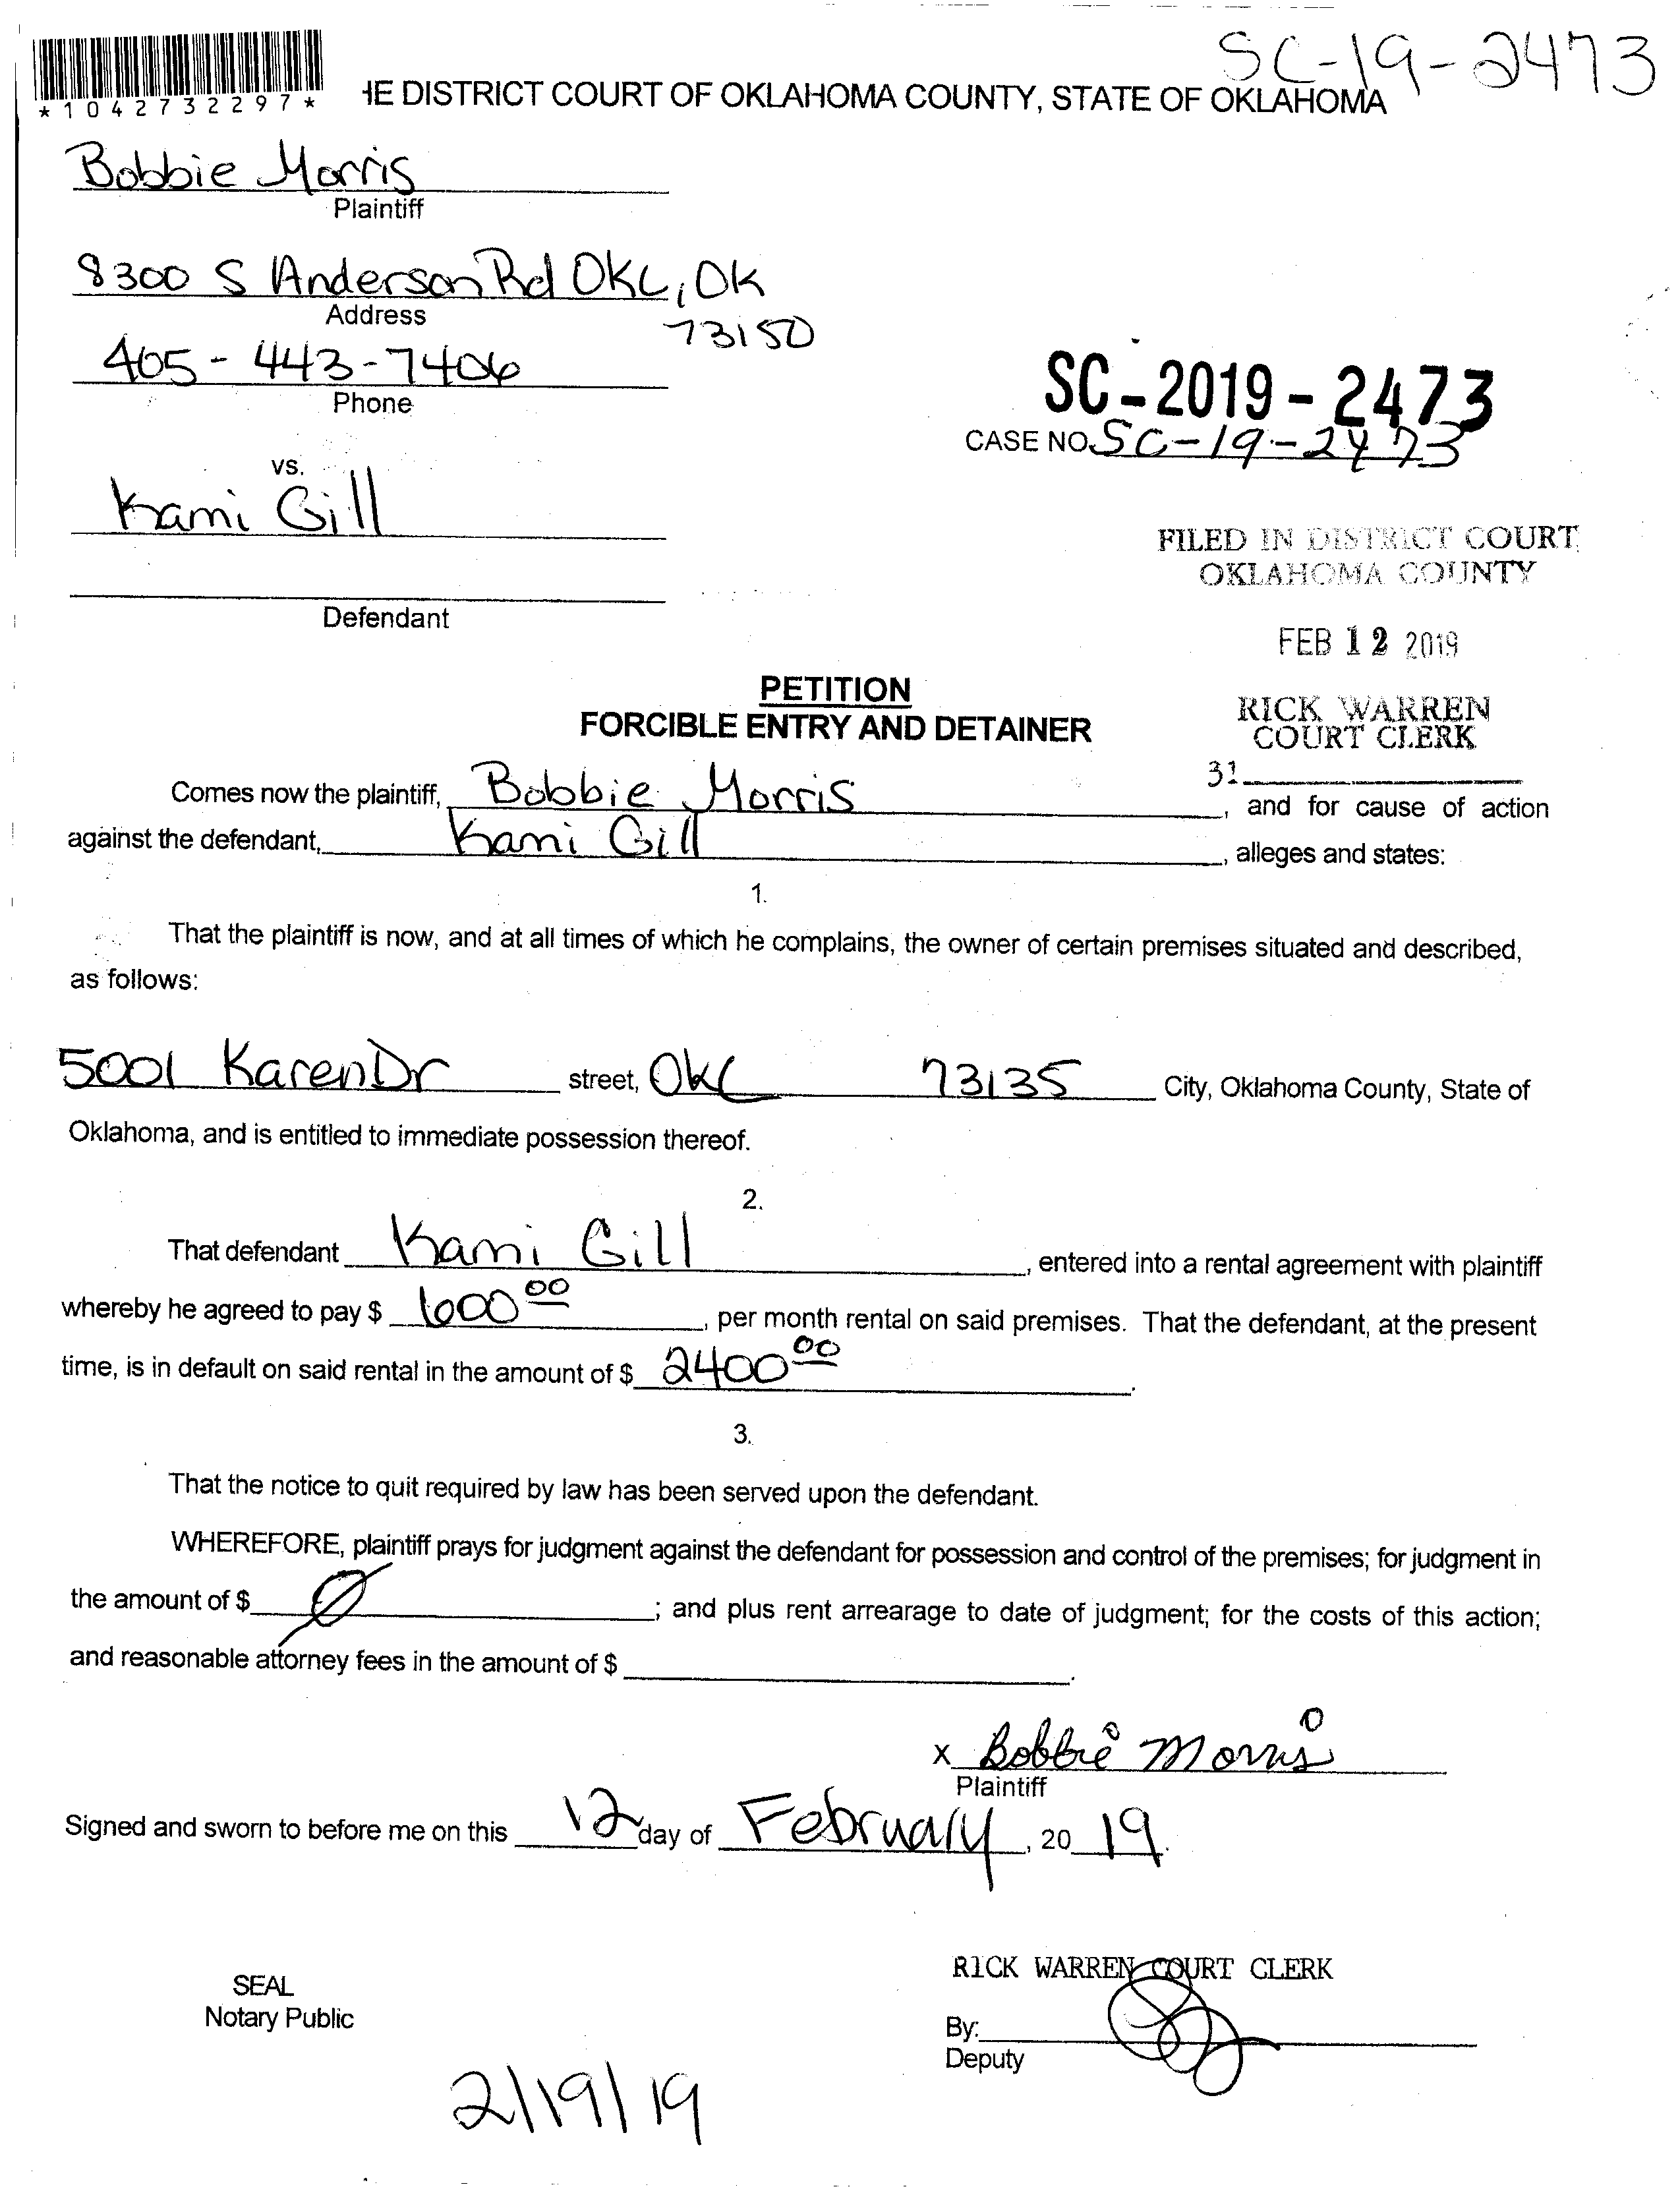 SC-19-2473
*1042732297*
HE DISTRICT COURT OF OKLAHOMA COUNTY, STATE OF OKLAHOMA
Bobbie Morris
Plaintiff
8300 S Anderson Rd OKC, OK
Address
73150
405-443-7406
Phone
SC-2019-2473
CASE NO. SC-19-2473
vs.
Kami Gill
FILED IN DISTRICT COURT
OKLAHOMA COUNTY
Defendant
FEB 12 2019
PETITION
FORCIBLE ENTRY AND DETAINER
RICK WARREN
COURT CLERK
31
Comes now the plaintiff, Bobbie Morris, and for cause of action
against the defendant, Kami Gill, alleges and states:
1.
That the plaintiff is now, and at all times of which he complains, the owner of certain premises situated and described,
as follows:
5001 Karen Dr street, OKC 73135 City, Oklahoma County, State of
Oklahoma, and is entitled to immediate possession thereof.
2.
That defendant Kami Gill, entered into a rental agreement with plaintiff
whereby he agreed to pay $ 600 00, per month rental on said premises. That the defendant, at the present
time, is in default on said rental in the amount of $ 2400 00.
3.
That the notice to quit required by law has been served upon the defendant.
WHEREFORE, plaintiff prays for judgment against the defendant for possession and control of the premises; for judgment in
the amount of $ 0; and plus rent arrearage to date of judgment; for the costs of this action;
and reasonable attorney fees in the amount of $ .
X Bobbie Morris
Plaintiff
Signed and sworn to before me on this 12 day of February, 20 19.
RICK WARREN COURT CLERK
SEAL
Notary Public
By:
Deputy
2/19/19